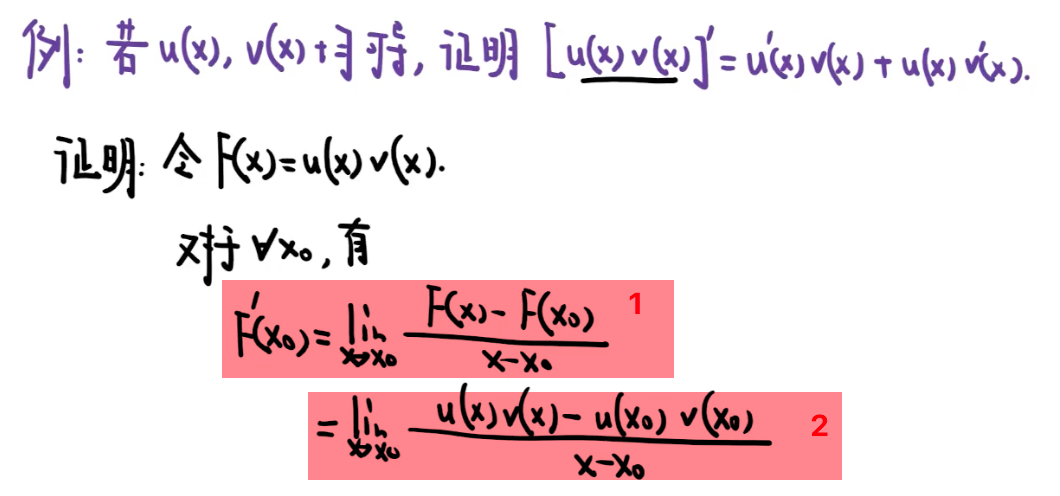 例: 若 u(x), v(x) 均可导, 证明 [u(x)v(x)]' = u'(x)v(x) + u(x)v'(x).
证明: 令 F(x)=u(x)v(x).
对于 ∀x₀, 有
F'(x₀) = lim_{x→x₀} (F(x) - F(x₀))/(x-x₀) 1
= lim_{x→x₀} (u(x)v(x) - u(x₀)v(x₀))/(x-x₀) 2